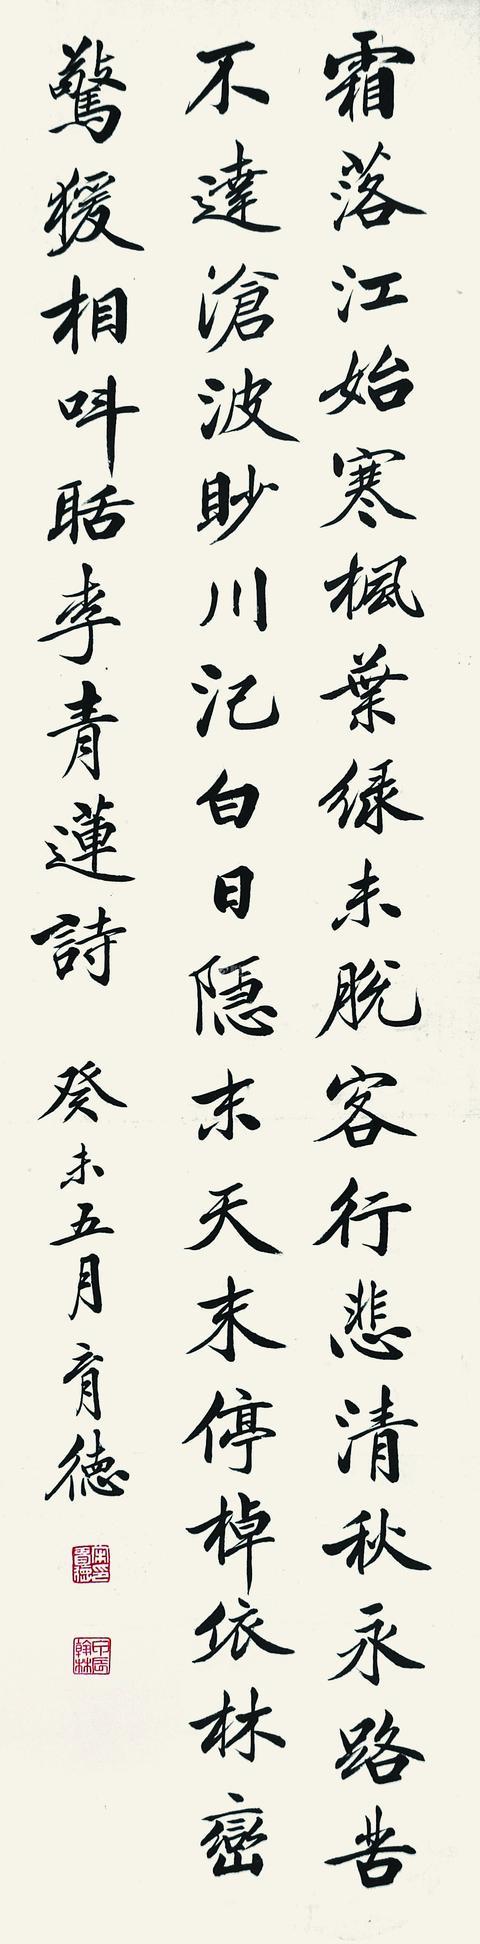 霜落江始寒楓葉緑未脫客行悲清秋永路苦
不達滄波眇川汜白日隱末天末停棹依林巒
驚猨相叫聒李青蓮詩 癸未五月育德
宋印育德
甲辰翰林